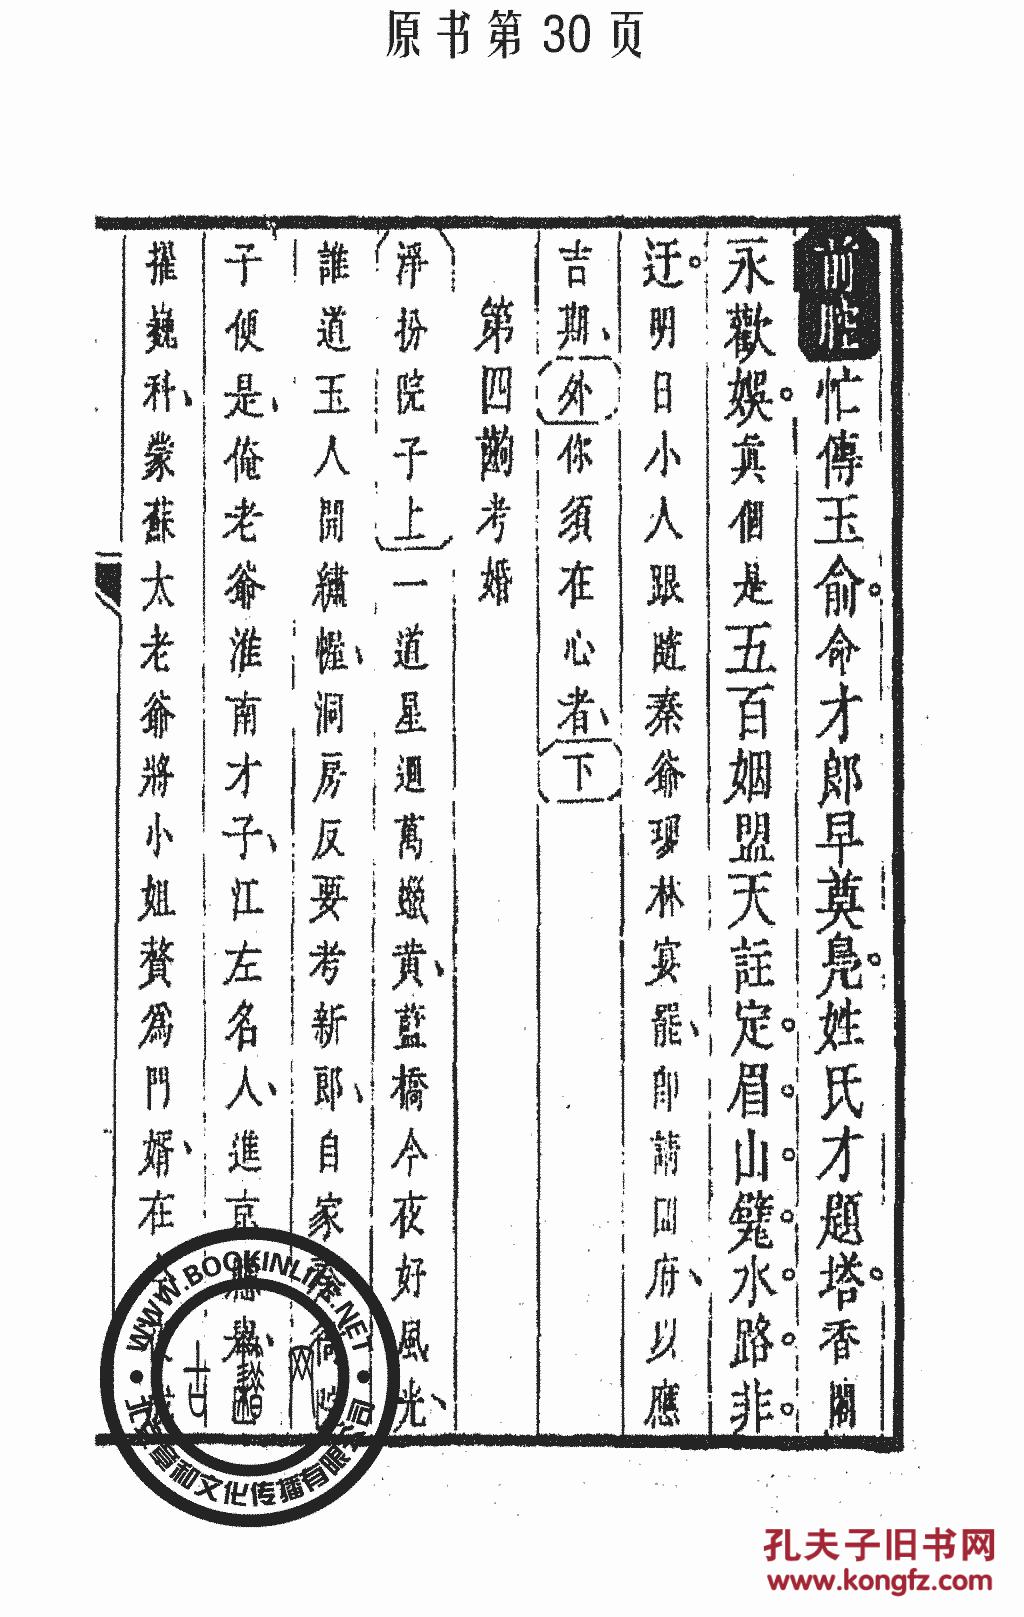 原书第30页
前腔忙傳玉俞命才郎早奠鳧姓氏才題塔香閨
永歡娛眞個是五百姻盟天註定眉山甃水路非
迂明日小人跟隨秦爺瓊林宴罷卽請回府以應
吉期外你須在心者下
第四齣考婚
淨扮院子上一道星迴萬蠟黄藍橋今夜好風光
誰道玉人開繡幄洞房反要考新郎自家
子便是俺老爺淮南才子江左名人進京
擢巍科蒙蘇太老爺將小姐贅爲門婿在
WWW.BOOKINLIFE.NET
文化传播有限公司
孔夫子旧书网
www.kongfz.com